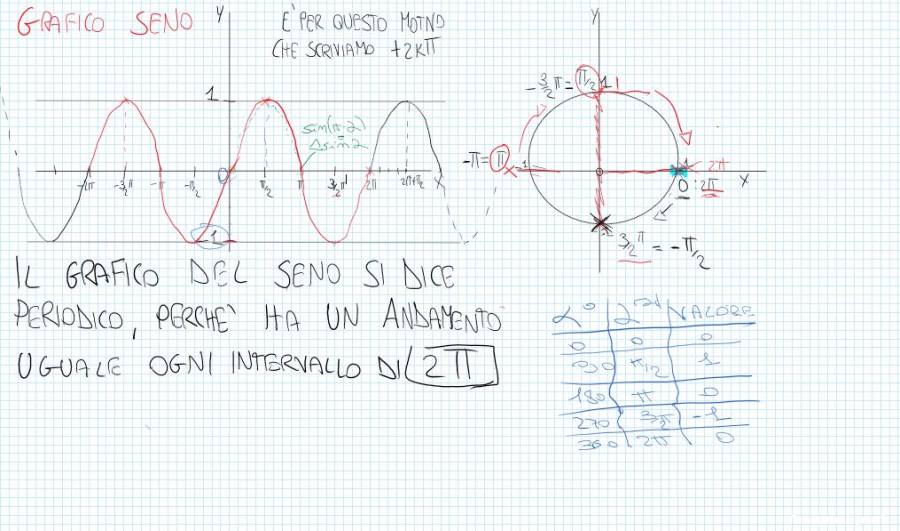 GRAFICO SENO
Y
E' PER QUESTO MOTIVO
CHE SCRIVIAMO +2Kπ
1
sin(π-α)
-2π -3/2π -π -π/2 0 π/2 π 3/2π 2π 2π+π/2 X
-1
Y
-3/2π = π/2 1
-π = π -1
1 2π
0 2π
X
3/2π = -π/2
IL GRAFICO DEL SENO SI DICE
PERIODICO, PERCHE' HA UN ANDAMENTO
UGUALE OGNI INTERVALLO DI 2π
α° αrad VALORE
0 0 0
90 π/2 1
180 π 0
270 3/2π -1
360 2π 0